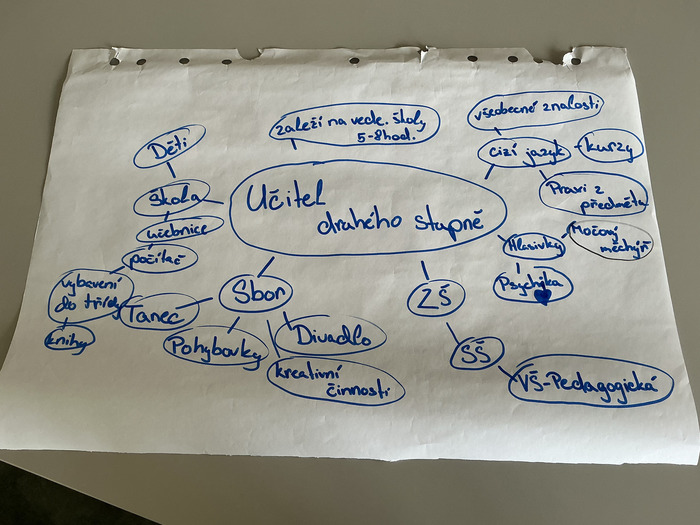 záleží na vede. školy
5-8hod.
všeobecné znalosti
cizí jazyk
kurzy
Praxi z
předmětu
Děti
škola
učebnice
počítač
vybavení
do třídy
knihy
Učitel
drahého stupně
Hlasivky
Močový
měchýř
Psychika
Sbor
Tanec
Pohybovky
Divadlo
kreativní
činnosti
ZŠ
SŠ
VŠ-Pedagogická